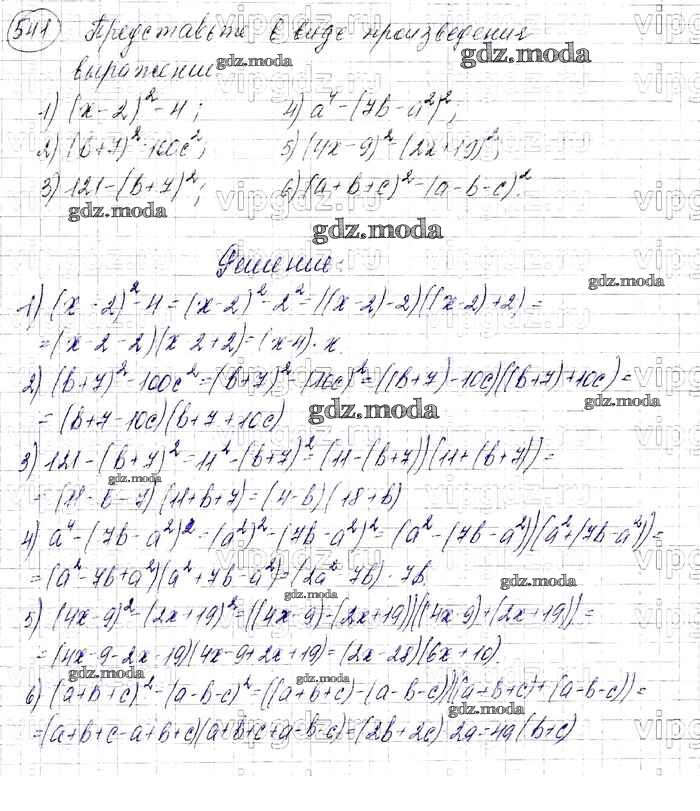 541 Представьте в виде произведения
выражение:
1) (x-2)²-4;  4) a⁴-(7b-a²)²;
2) (b+7)²-100c²;  5) (4x-9)²-(2x+19)²;
3) 121-(b+7)²;  6) (a+b+c)²-(a-b-c)².
Решение:
1) (x-2)²-4=(x-2)²-2²=((x-2)-2)((x-2)+2)=
=(x-2-2)(x-2+2)=(x-4)·x.
2) (b+7)²-100c²=(b+7)²-(10c)²=((b+7)-10c)((b+7)+10c)=
=(b+7-10c)(b+7+10c)
3) 121-(b+7)²=11²-(b+7)²=(11-(b+7))(11+(b+7))=
=(11-b-7)(11+b+7)=(4-b)(18+b)
4) a⁴-(7b-a²)²=(a²)²-(7b-a²)²=(a²-(7b-a²))(a²+(7b-a²))=
=(a²-7b+a²)(a²+7b-a²)=(2a²-7b)·7b.
5) (4x-9)²-(2x+19)²=((4x-9)-(2x+19))((4x-9)+(2x+19))=
=(4x-9-2x-19)(4x-9+2x+19)=(2x-28)(6x+10).
6) (a+b+c)²-(a-b-c)²=((a+b+c)-(a-b-c))((a+b+c)+(a-b-c))=
=(a+b+c-a+b+c)(a+b+c+a-b-c)=(2b+2c)·2a=4a(b+c)
gdz.moda
vipgdz.ru